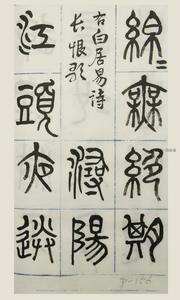 綿〻無絕期
右白居易诗
长恨歌
潯陽
江頭夜送
P-156